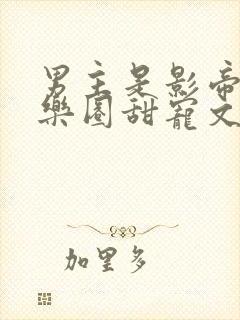 男主是影帝
樂園甜寵文
加里多